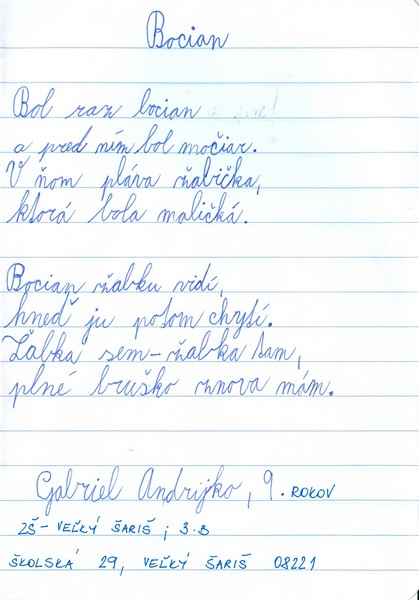 Bocian
Bol raz bocian
a pred ním bol močiar.
V ňom pláva žabička,
ktorá bola maličká.
Bocian žabku vidí,
hneď ju potom chytí.
Žabka sem-žabka tam,
plné bruško znova mám.
Gabriel Andrijko, 9. ROKOV
ZŠ - VEĽKÝ ŠARIŠ ; 3.B
ŠKOLSKÁ 29, VEĽKÝ ŠARIŠ 08221